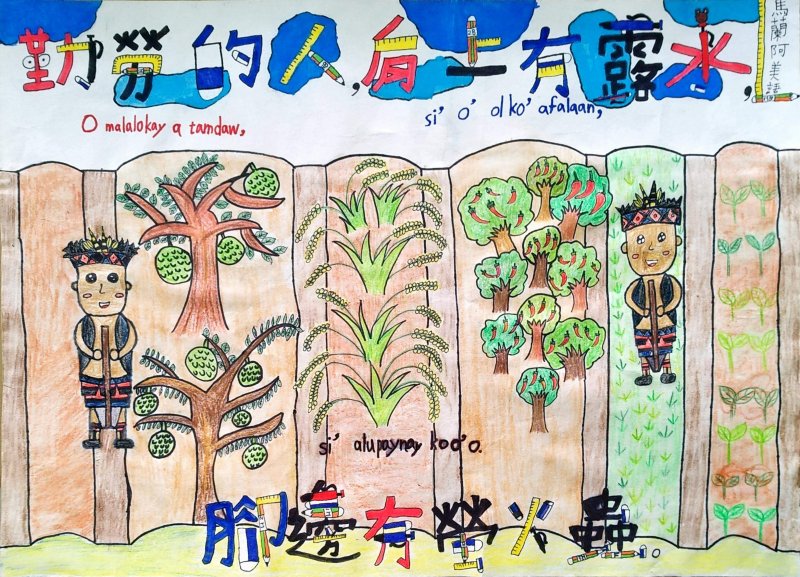 勤勞的人,肩上有露水,
馬蘭阿美語
O malalokay a tamdaw,
si' o' ol ko' afalaan,
si' alupaynay ko o'o.
腳邊有螢火蟲。